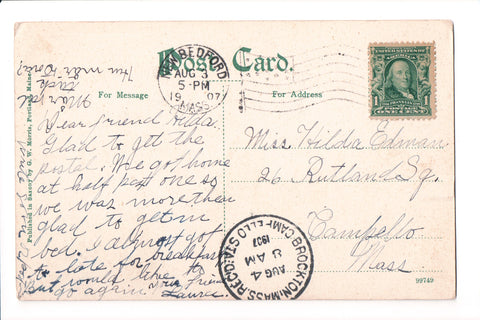 Post Card.
NEW BEDFORD
AUG 3
5-PM
19 07
MASS.
For Message
For Address
UNITED STATES OF AMERICA
1
1
ONE CENT
Dear Friend Hilda
Glad to get the
postal. We got home
at half past one so
we was more then
glad to get in
bed. I almost got
to late for breakfast
But would like to
go again. your Friend
Laura
write soon
Miss Hilda Edman
26 Rutland Sq.
Campello
Mass
BROCKTON, MASS. REC'D.
CAMPELLO STA.
AUG 4
8 AM
1907
Published in Saxony by G. W. Morris, Portland, Maine.
99749